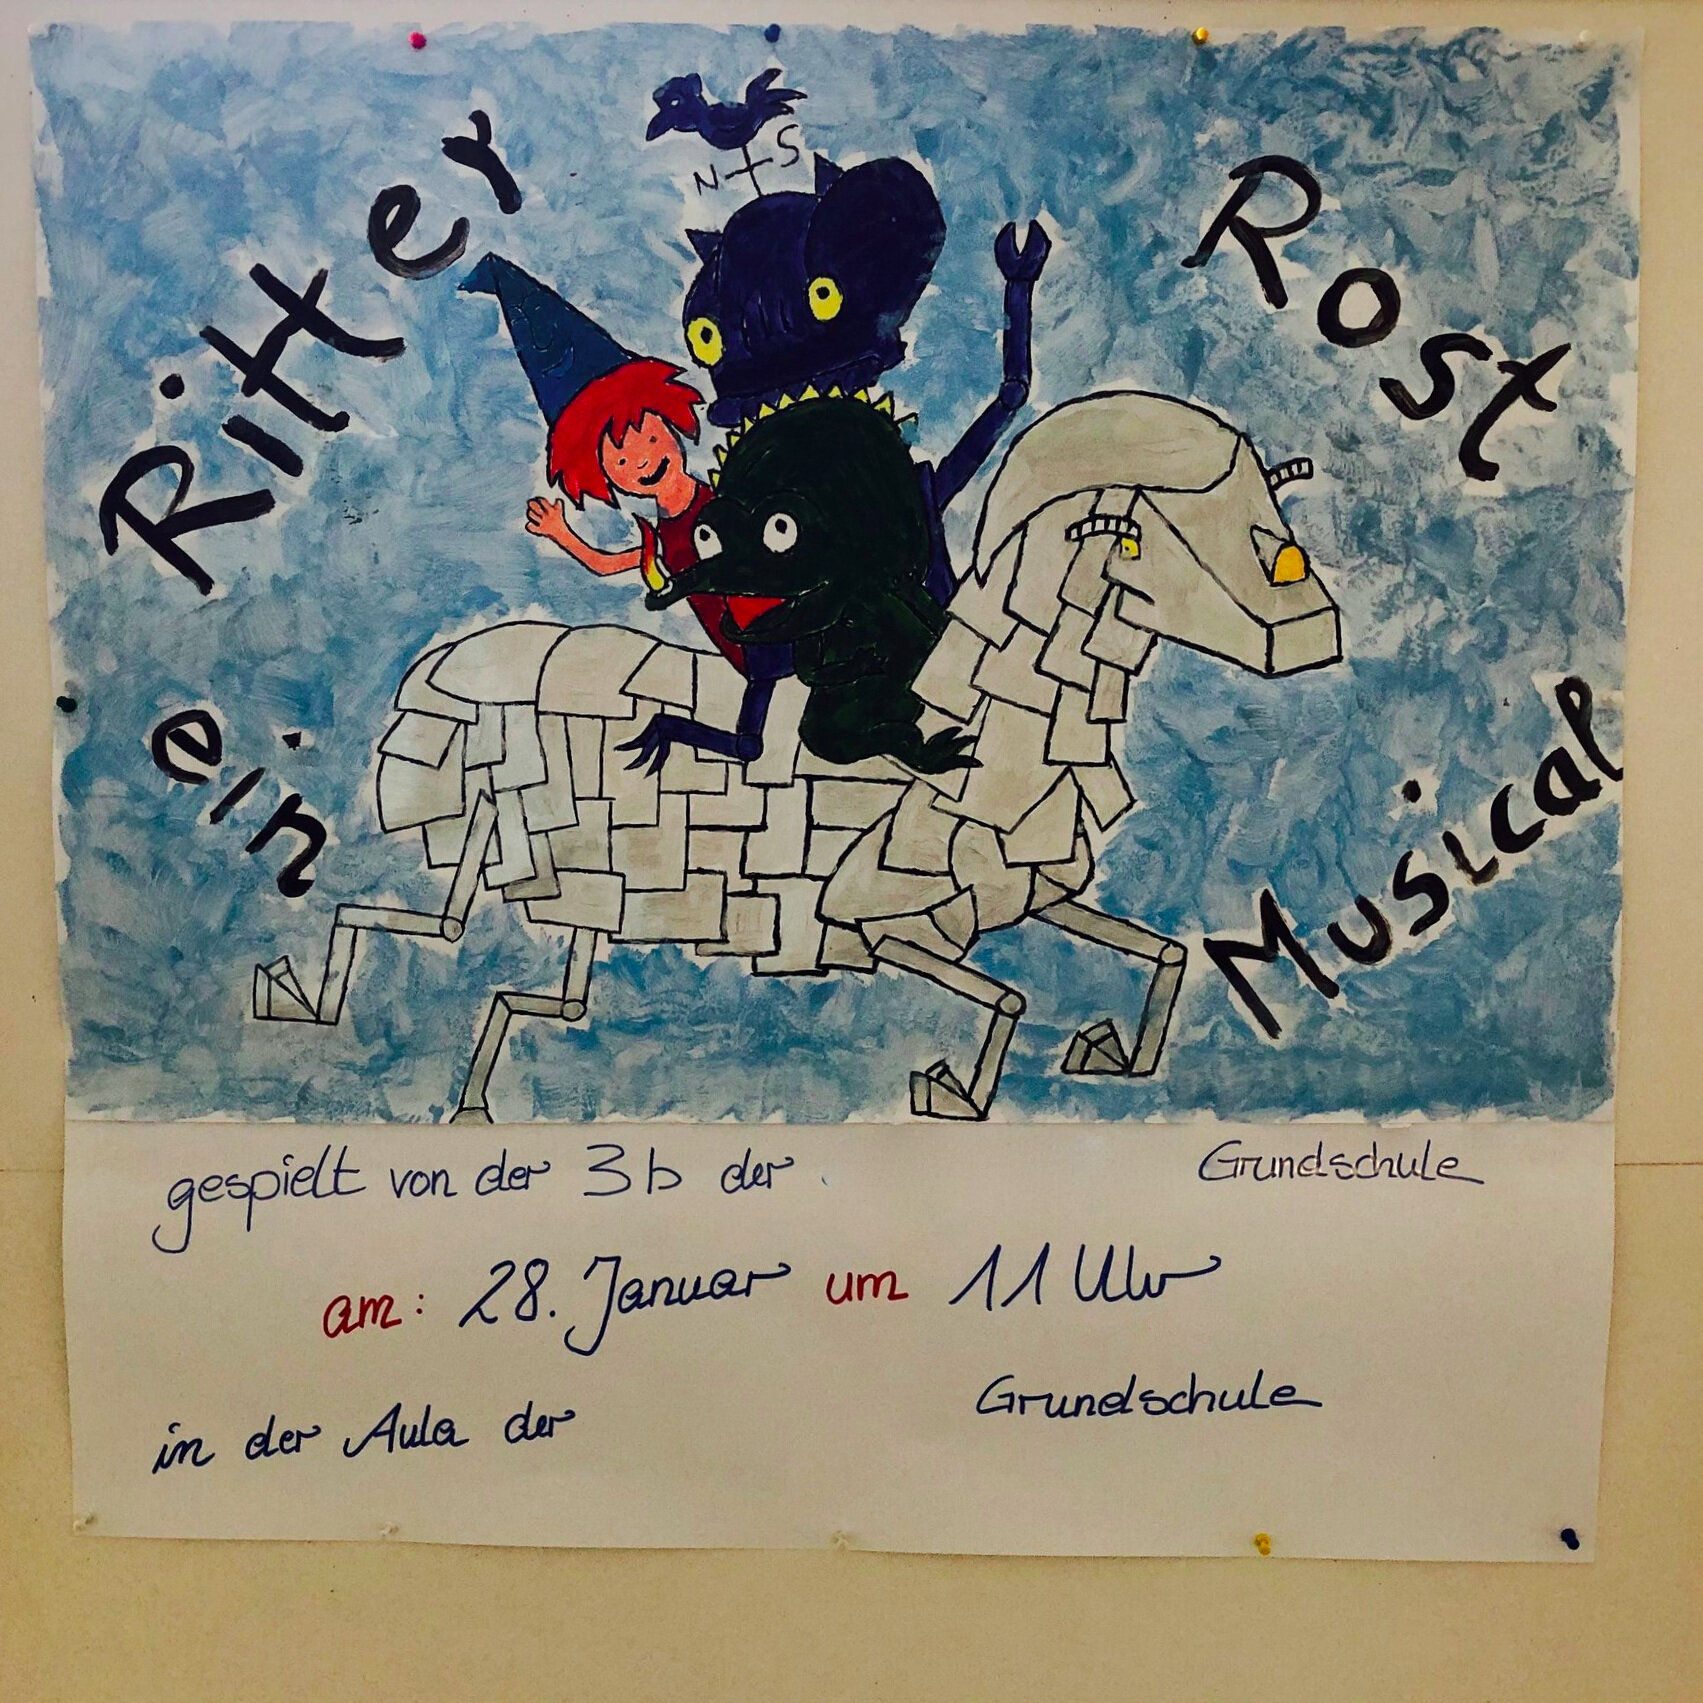 N S
Ritter Rost
ein Musical
gespielt von der 3b der Grundschule
am: 28. Januar um 11 Uhr
in der Aula der Grundschule